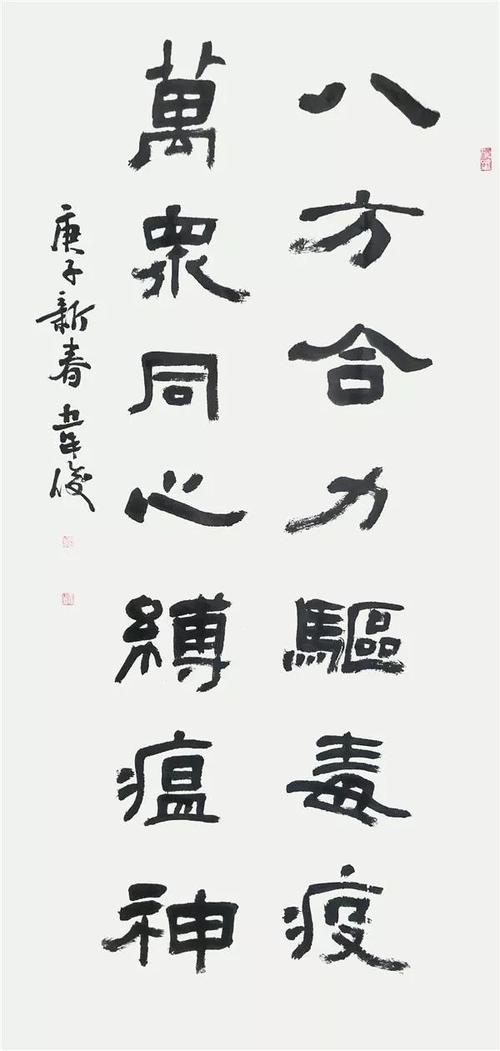 八方合力驅毒疫
萬眾同心縛瘟神
庚子新春韋俊